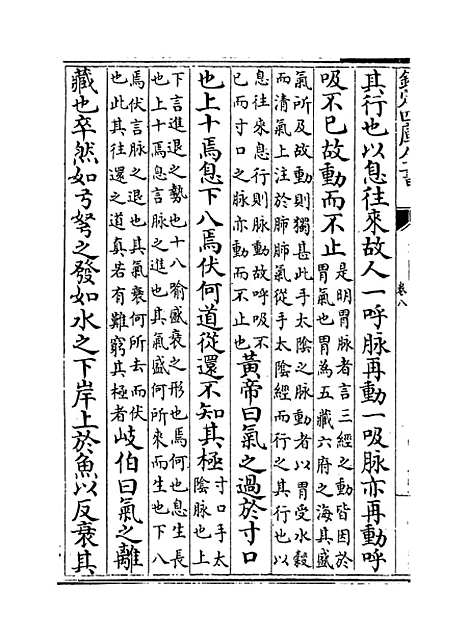 卷八
其行也以息往來故人一呼脉再動一吸脉亦再動呼
吸不已故動而不止
是明胃脉者言三經之動皆因於
胃氣也胃為五藏六府之海其盛
氣所及故動則獨甚此手太陰之脉動者以胃受水穀
而清氣上注於肺肺氣從手太陰經而行之其行也以
息往來息行則脉動故呼吸不
已而寸口之脉亦動而不止也
黃帝曰氣之過於寸口
也上十焉息下八焉伏何道從還不知其極
寸口手太
陰脉也上
下言進退之勢也十八喻盛衰之形也焉何也息生長
也上十焉息言脉之進也其氣盛何所來而生也下八
焉伏言脉之退也其氣衰何所去而伏
也此其往還之道真若有難窮其極者
岐伯曰氣之離
藏也卒然如弓弩之發如水之下岸上於魚以反衰其